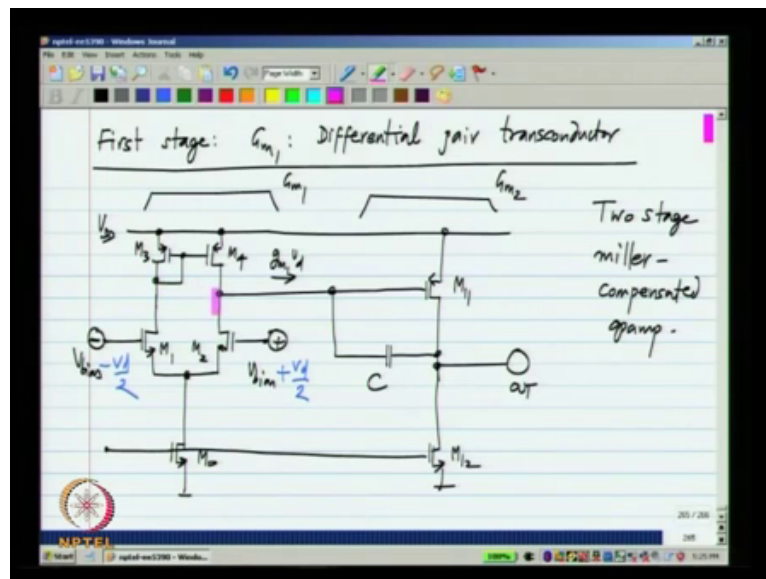 nptel-ee5390 - Windows Journal
File Edit View Insert Actions Tools Help
Page Width
First stage: Gm1: Differential pair transconductor
Gm1
Gm2
Two stage
miller-
compensated
opamp.
VDD
M3
M4
gm1 vd
M11
M1
M2
Vbias - Vd/2
Vbias + Vd/2
C
OUT
M0
M12
265 / 266
265
NPTEL
Start
nptel-ee5390 - Windo...
100%
5:25 PM